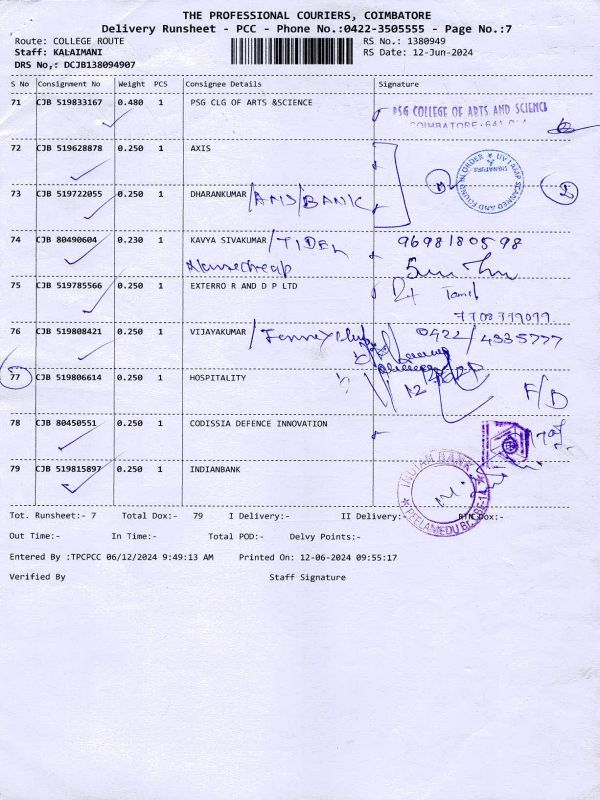 THE PROFESSIONAL COURIERS, COIMBATORE
Delivery Runsheet - PCC - Phone No.:0422-3505555 - Page No.:7
Route: COLLEGE ROUTE RS No.: 1380949
Staff: KALAIMANI RS Date: 12-Jun-2024
DRS No,: DCJB138094907
S No Consignment No Weight PCS Consignee Details Signature
71 CJB 519833167 0.480 1 PSG CLG OF ARTS &SCIENCE PSG COLLEGE OF ARTS AND SCIENCE
COIMBATORE-641 014
72 CJB 519628878 0.250 1 AXIS
73 CJB 519722055 0.250 1 DHARANKUMAR /AMS/BANK 2
74 CJB 80490604 0.230 1 KAVYA SIVAKUMAR /TIDEL 9698180598
Namecheap
75 CJB 519785566 0.250 1 EXTERRO R AND D P LTD Tamil
7708799099
76 CJB 519808421 0.250 1 VIJAYAKUMAR 0422/4335777
77 CJB 519806614 0.250 1 HOSPITALITY F/D
78 CJB 80450551 0.250 1 CODISSIA DEFENCE INNOVATION
79 CJB 519815897 0.250 1 INDIANBANK
INDIAN BANK
Tot. Runsheet:- 7 Total Dox:- 79 I Delivery:- II Delivery:- RTN Dox:-
Out Time:- In Time:- Total POD:- Delvy Points:-
Entered By :TPCPCC 06/12/2024 9:49:13 AM Printed On: 12-06-2024 09:55:17
Verified By Staff Signature